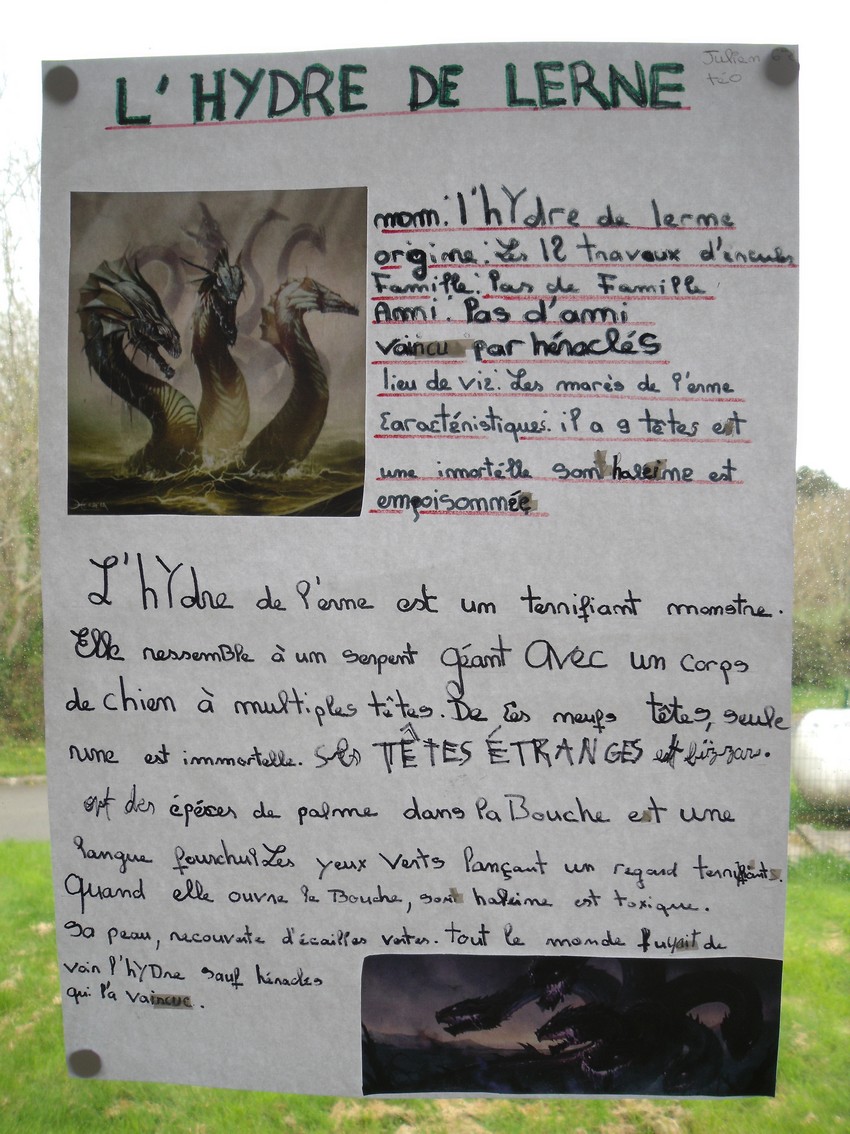 L'HYDRE DE LERNE
Julien 6e
téo
nom: l'hYdre de lerne
origine: Les 12 travaux d'ercules
Famille: Pas de Famille
Ami: Pas d'ami
vaincu par héraclés
lieu de vie: Les marès de l'erne
Caractéristiques: il a 9 têtes est
une immortélle son haleine est
empoisonnée
L'hYdre de l'erne est un terrifiant monstre.
Elle ressemBle à un serpent géant avec un corps
de chien à multiples têtes. De ses neufs têtes, seule
l'une est immortelle. Ses TÊTES ÉTRANGES et bizzar.
ont des épéces de palme dans la Bouche est une
langue fourchu! Les yeux verts lançant un regard terrifiants.
Quand elle ouvre la Bouche, son haleine est toxique.
Sa peau, recouverte d'écailles vertes. tout le monde fuyait de
voir l'hYDre sauf héracles
qui l'a vaincue.